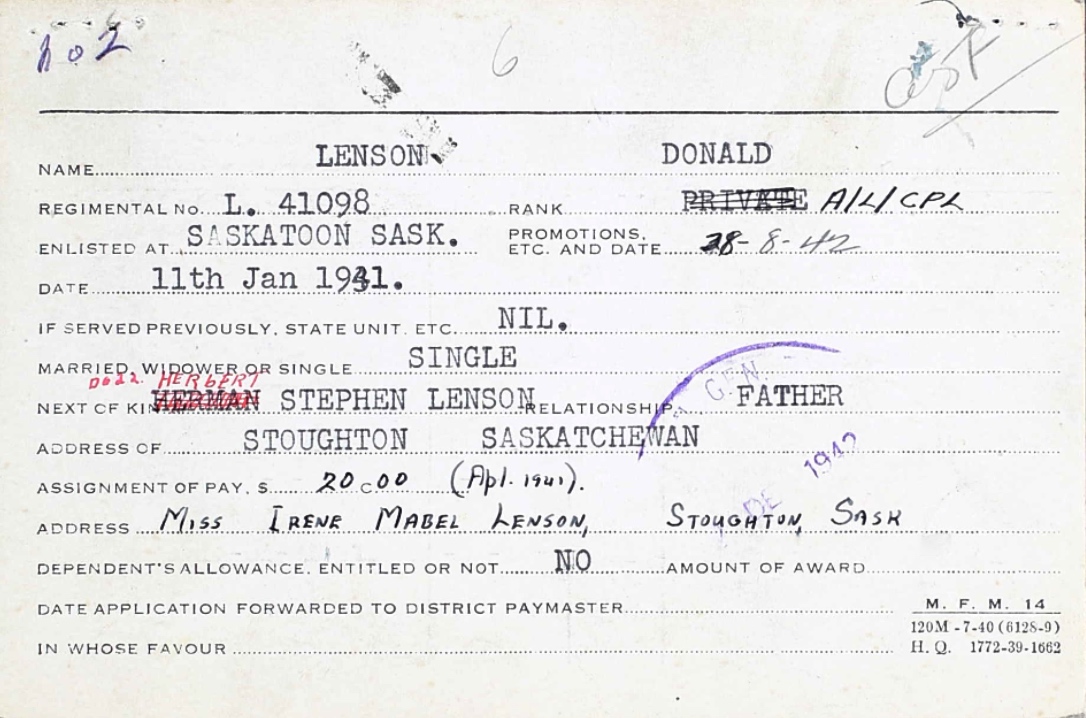 6
NAME LENSON DONALD
REGIMENTAL No. L. 41098 RANK PRIVATE A/L/CPL
ENLISTED AT SASKATOON SASK. PROMOTIONS, ETC. AND DATE 28-8-42
DATE 11th Jan 1941.
IF SERVED PREVIOUSLY, STATE UNIT. ETC. NIL.
MARRIED, WIDOWER OR SINGLE SINGLE
HERBERT
NEXT OF KIN HERMAN STEPHEN LENSON RELATIONSHIP FATHER
ADDRESS OF STOUGHTON SASKATCHEWAN
GEN
DE 1942
ASSIGNMENT OF PAY, $ 20 C 00 (Apl. 1941).
ADDRESS MISS IRENE MABEL LENSON, STOUGHTON, SASK
DEPENDENT'S ALLOWANCE. ENTITLED OR NOT NO AMOUNT OF AWARD
DATE APPLICATION FORWARDED TO DISTRICT PAYMASTER
IN WHOSE FAVOUR
M. F. M. 14
120M-7-40 (6128-9)
H. Q. 1772-39-1662